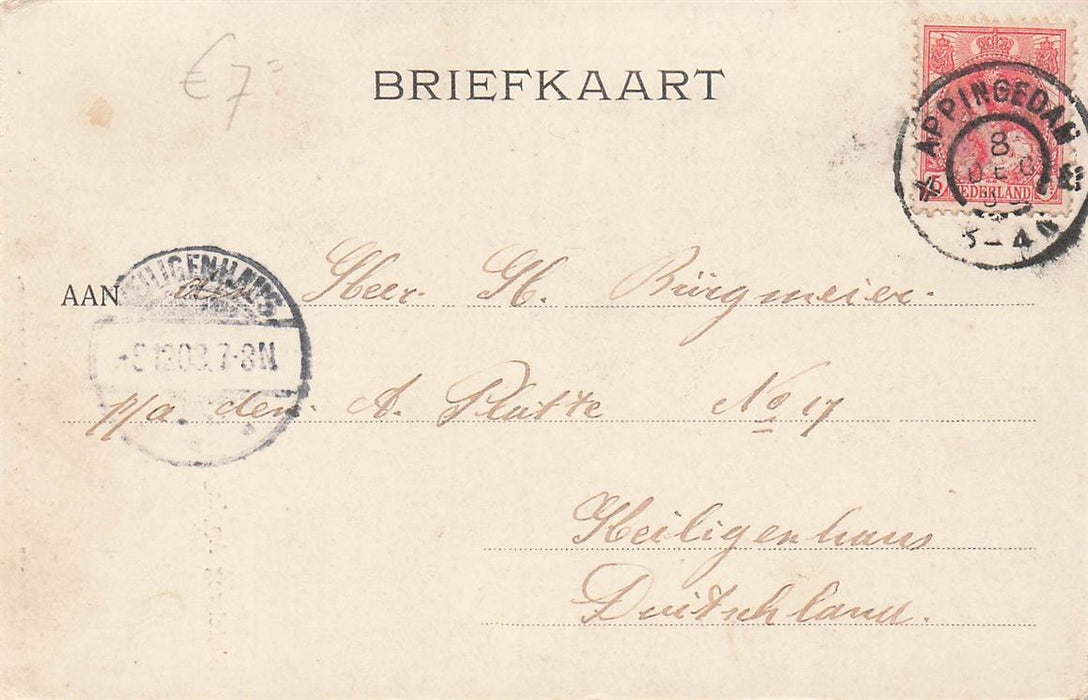 € 7=
BRIEFKAART
APPINGEDAM
8
DEC
5 NEDERLAND
3-4N
HEILIGENHAUS
7-8N
AAN den Heer. H. Bürgmeier.
p/a den. A. Platte No 17
Heiligenhaus
Duitschland.